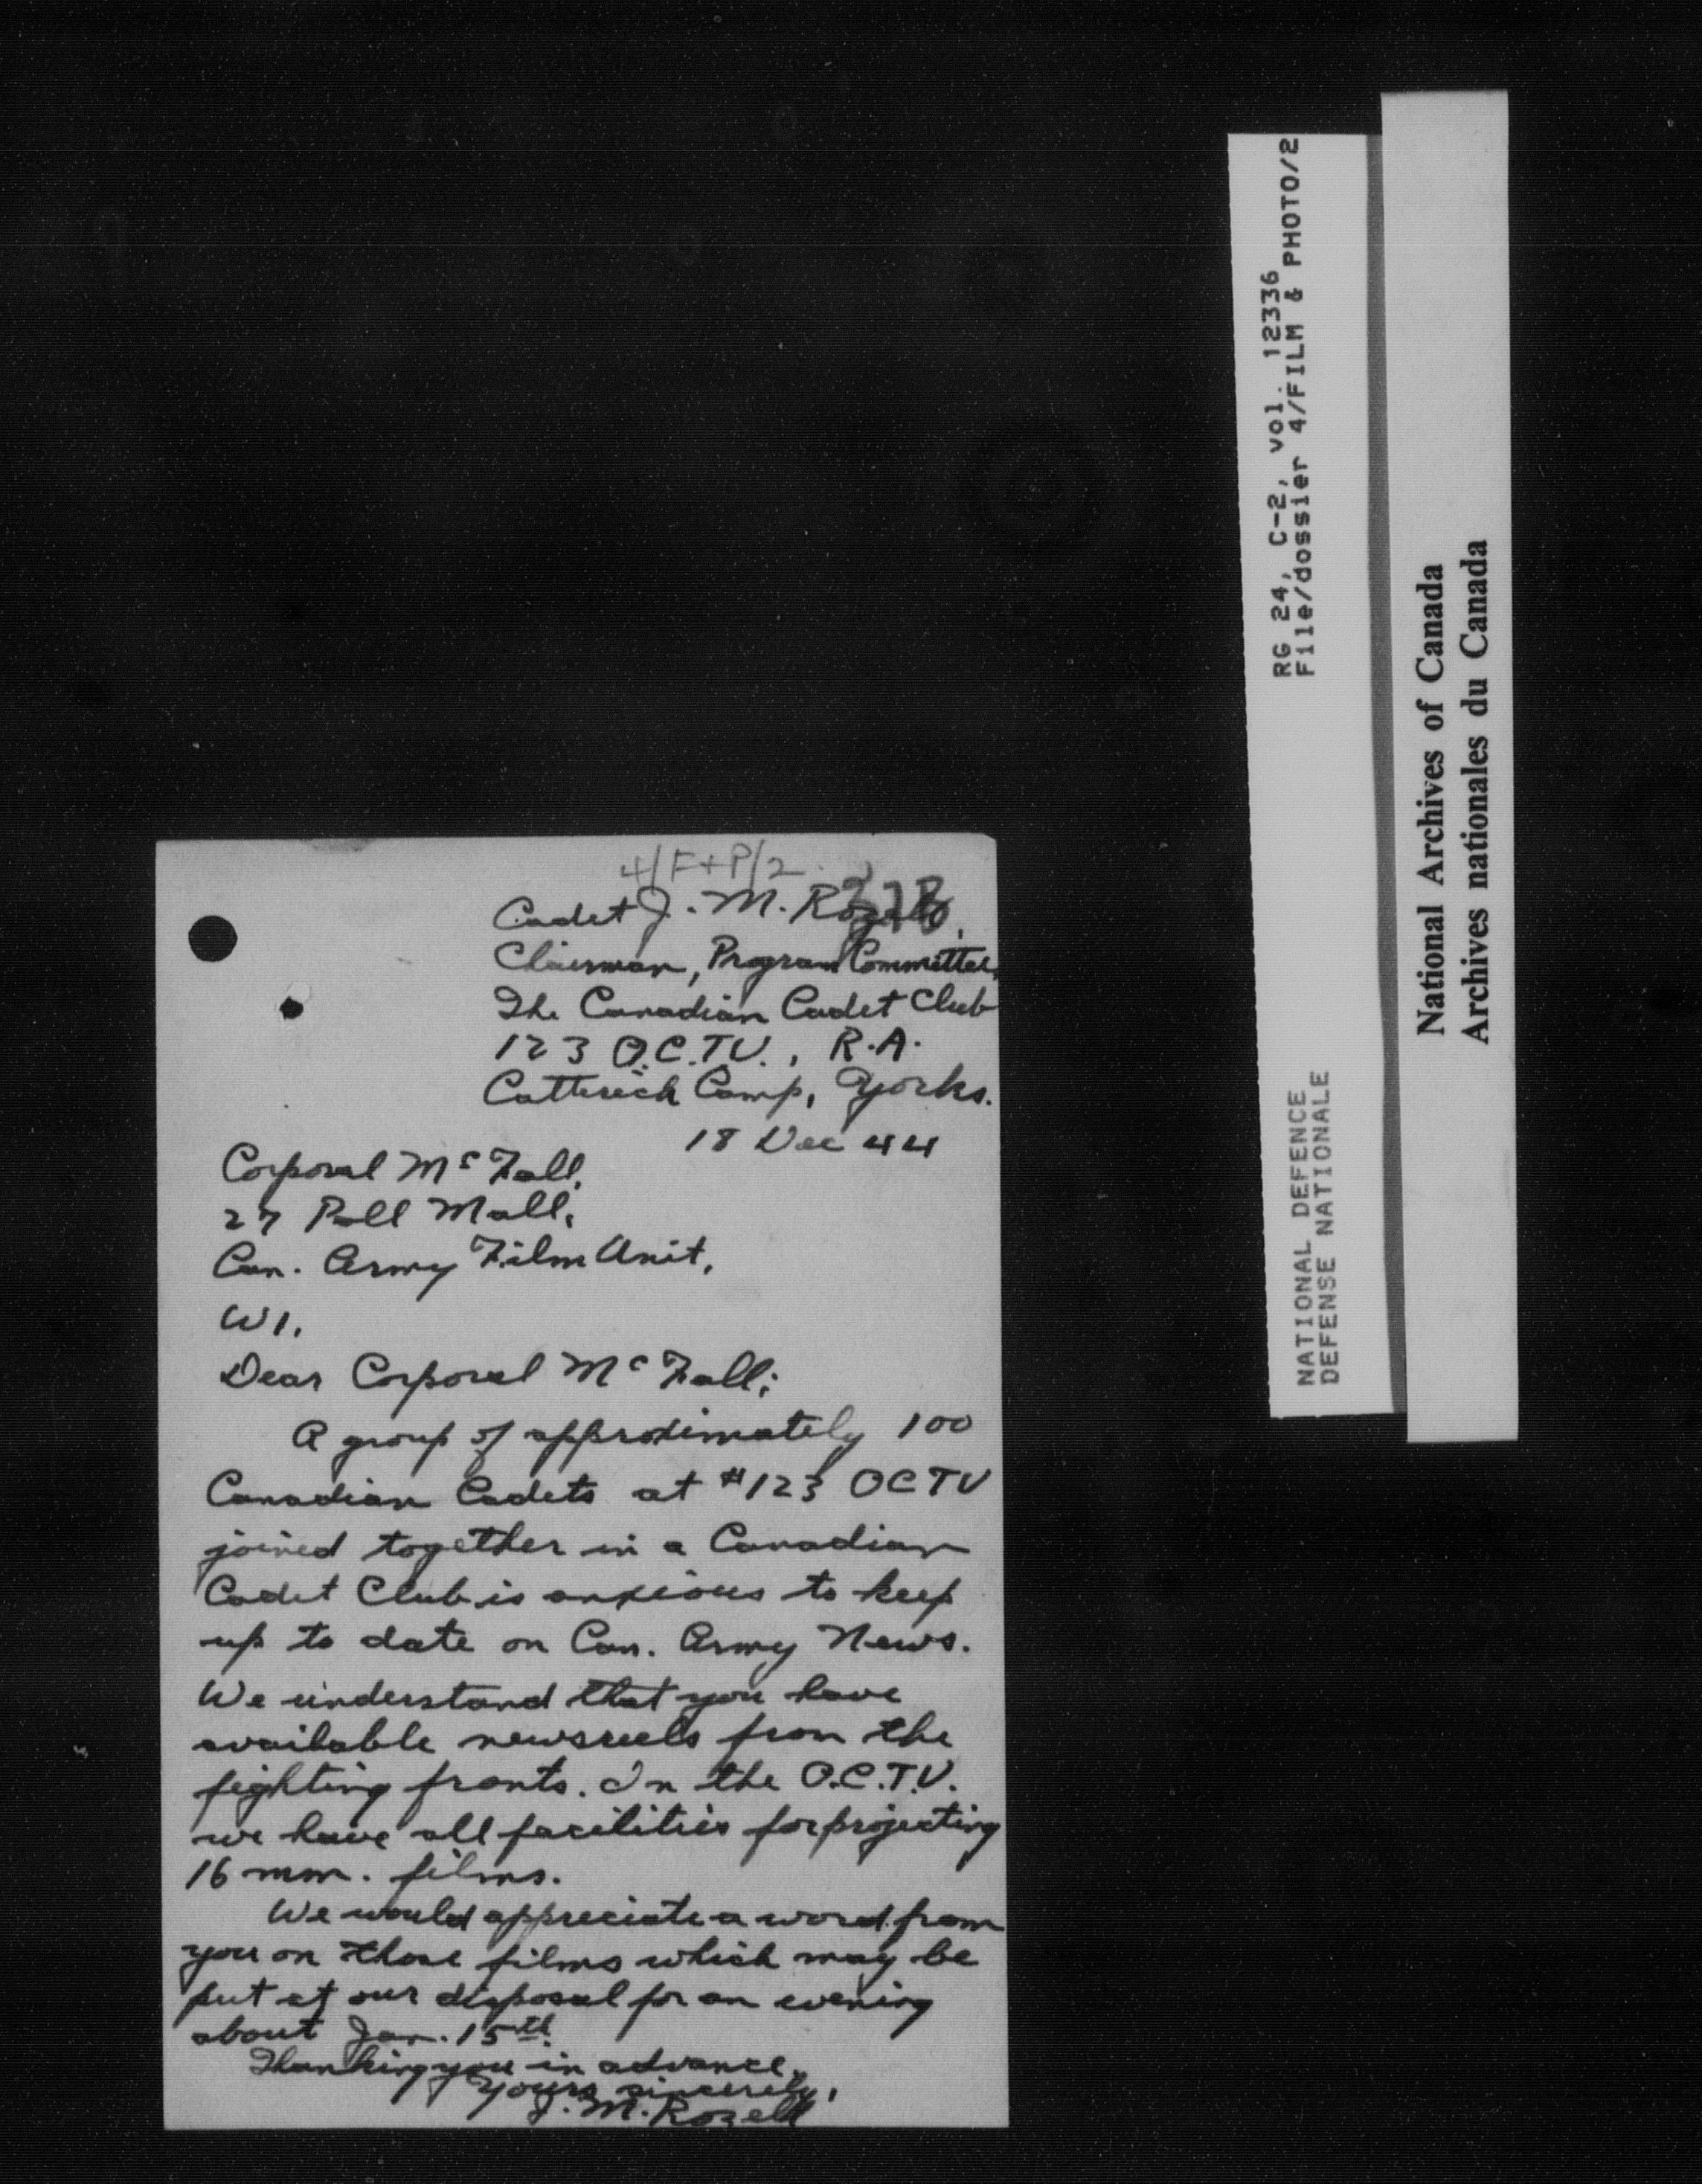 4/F+P/2
37B
Cadet J. M. Rozell,
Chairman, Program Committee,
The Canadian Cadet Club
123 O.C.T.U., R.A.
Catterick Camp, Yorks.
18 Dec 44
Corporal McFall,
27 Pall Mall,
Can. Army Film Unit,
W1.
Dear Corporal McFall;
A group of approximately 100
Canadian Cadets at #123 OCTU
joined together in a Canadian
Cadet Club is anxious to keep
up to date on Can. Army News.
We understand that you have
available newsreels from the
fighting fronts. In the O.C.T.U.
we have all facilities for projecting
16 mm. films.
We would appreciate a word from
you on those films which may be
put at our disposal for an evening
about Jan. 15th.
Thanking you in advance,
Yours sincerely,
J. M. Rozell
RG 24, C-2, vol. 12336
File/dossier 4/FILM & PHOTO/2
NATIONAL DEFENCE
DEFENSE NATIONALE
National Archives of Canada
Archives nationales du Canada